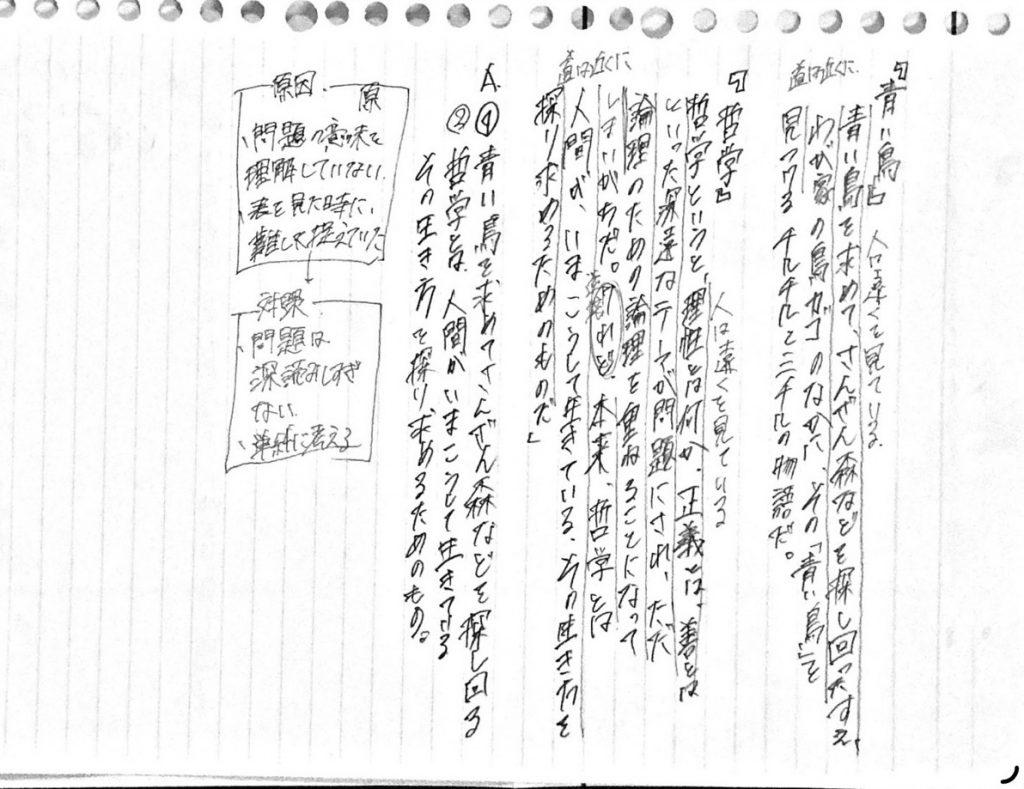 『青い鳥』
人は遠くを見ている
道は近くに
青い鳥を求めて、さんざん森などを探し回ったすえ、
わが家の鳥カゴのなかに、その「青い鳥」を
見つけるチルチルとミチルの物語だ。
『哲学』
人は遠くを見ている
哲学というと、理性とは何か、正義とは、善とは
といった深遠なテーマが問題にされ、ただ
論理のための論理を重ねることになって
しまいがちだ。けれど、本来、哲学とは
道は近くに
人間が、いまこうして生きている、その生き方を
探り求めるためのものだ」
A.① 青い鳥を求めてさんざん森などを探し回る
② 哲学とは、人間がいまこうして生きている
その生き方を探り、求めるためのもの。
原因 原
問題の意味を
理解していない
表を見た時に、
難しく捉えていた
対策
問題は
深読みしすぎ
ない
単純に考える